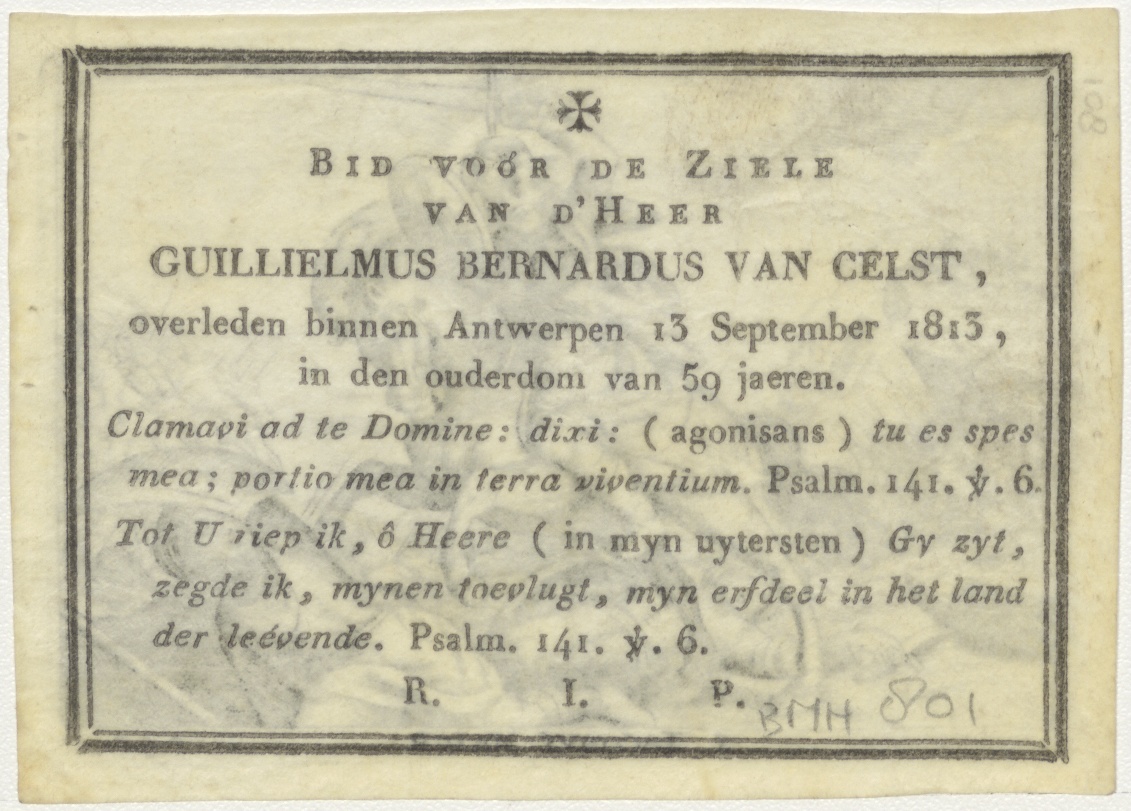 BID VOÓR DE ZIELE
VAN D'HEER
GUILLIELMUS BERNARDUS VAN CELST,
overleden binnen Antwerpen 13 September 1813,
in den ouderdom van 59 jaeren.
Clamavi ad te Domine: dixi: ( agonisans ) tu es spes
mea; portio mea in terra viventium. Psalm. 141. ℣. 6.
Tot U riep ik, ô Heere ( in myn uytersten ) Gy zyt,
zegde ik, mynen toevlugt, myn erfdeel in het land
der leévende. Psalm. 141. ℣. 6.
R. I. P.
BMH 801
108